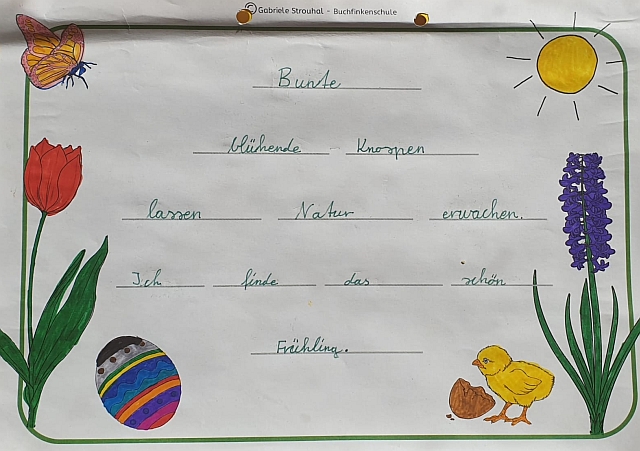 ©Gabriele Strouhal - Buchfinkenschule
Bunte
blühende Knospen
lassen Natur erwachen.
Ich finde das schön
Frühling.